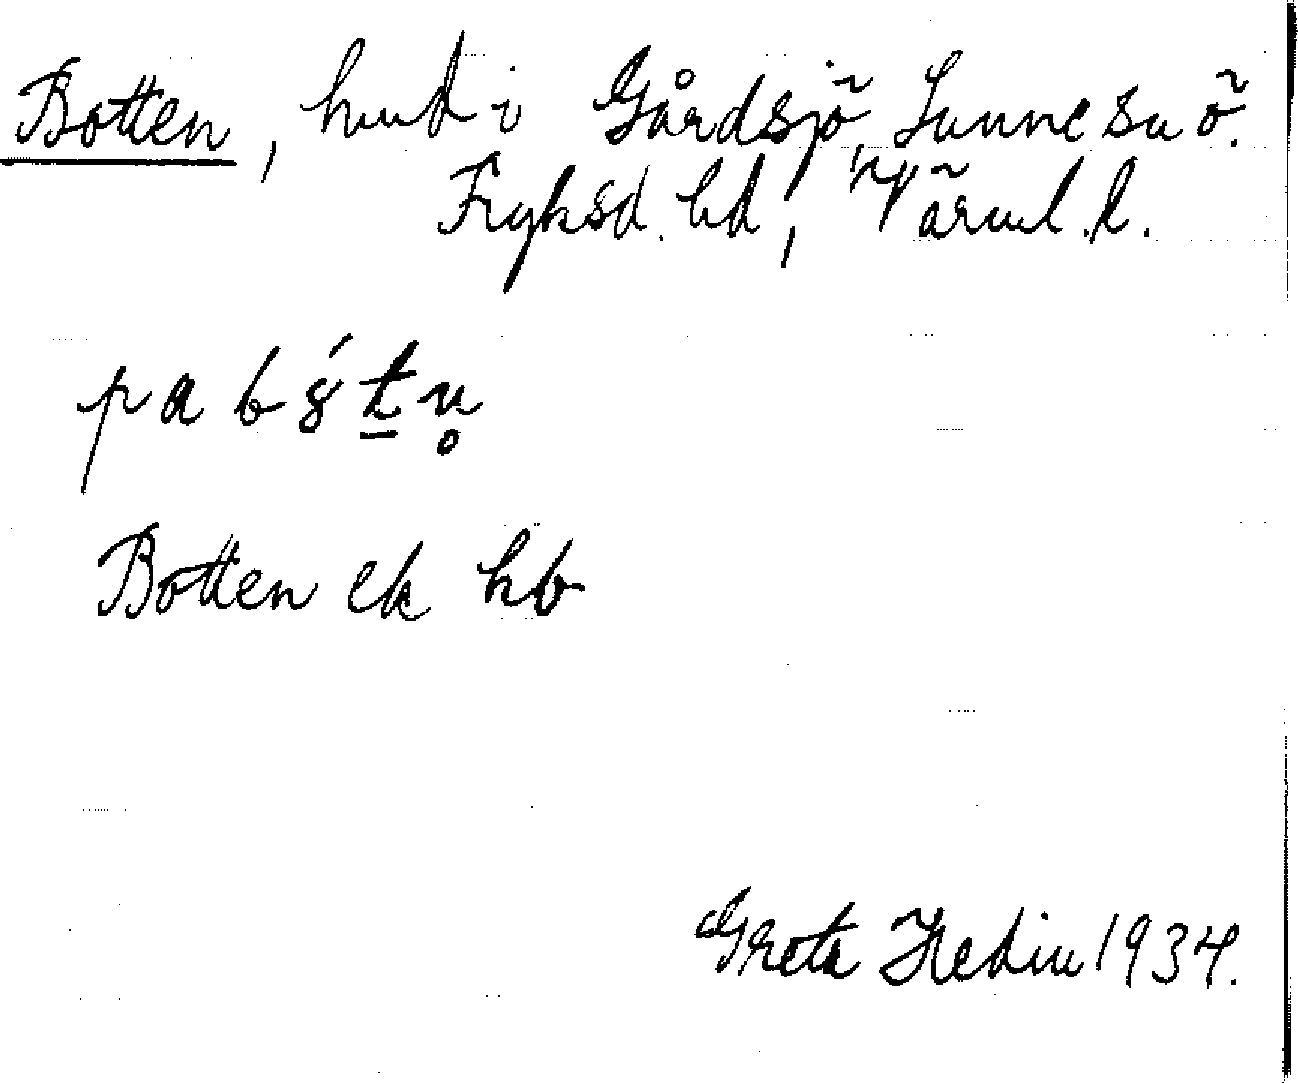 Botten, hmd i Gårdsjö, Sunne sn ö.
Fryksd. hd, Värml. l.
pa bǿt̲n̥
Botten ek hb
Greta Hedin 1934.